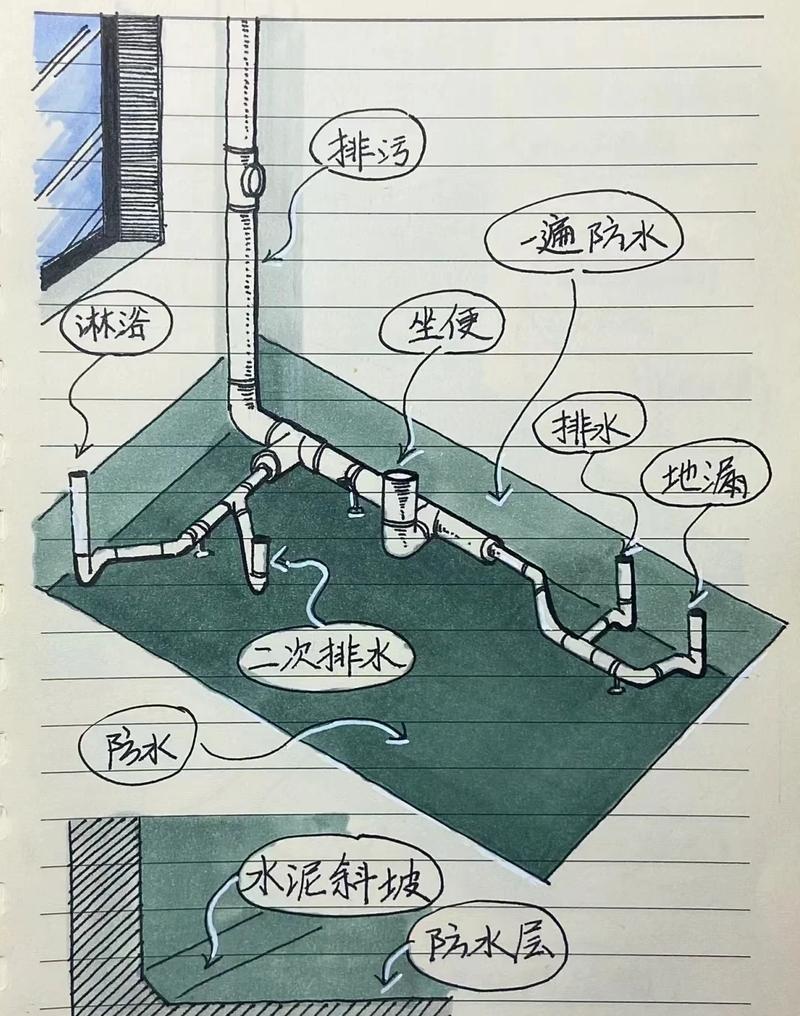 排污
一遍防水
淋浴
坐便
排水
地漏
二次排水
防水
水泥斜坡
防水层